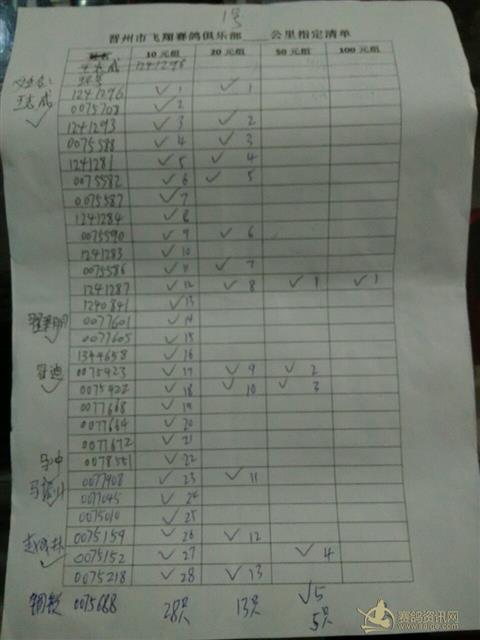 1号
晋州市飞翔赛鸽俱乐部____公里指定清单
姓名 10元组 20元组 50元组 100元组
王志成 1241298
环号
王志成 1241296 ✓1 ✓1
0075708 ✓2
1241293 ✓3 ✓2
0075588 ✓4 ✓3
1241281 ✓5 ✓4
0075582 ✓6 ✓5
0075587 ✓7
1241284 ✓8
0075590 ✓9 ✓6
1241283 ✓10
0075586 ✓11 ✓7
1241287 ✓12 ✓8 ✓1 ✓1
1240841 ✓13
0077601 ✓14
0077605 ✓15
1344658 ✓16
0075423 ✓17 ✓9 ✓2
0075422 ✓18 ✓10 ✓3
0077668 ✓19
0077664 ✓20
0077672 ✓21
马冲 0078551 ✓22
0077908 ✓23 ✓11
0077045 ✓24
0075010 ✓25
0075159 ✓26 ✓12
0075152 ✓27 ✓4
0075218 ✓28 ✓13
0075688 ✓5
28只 13只 5只
赛鸽资讯网
www.saige.com